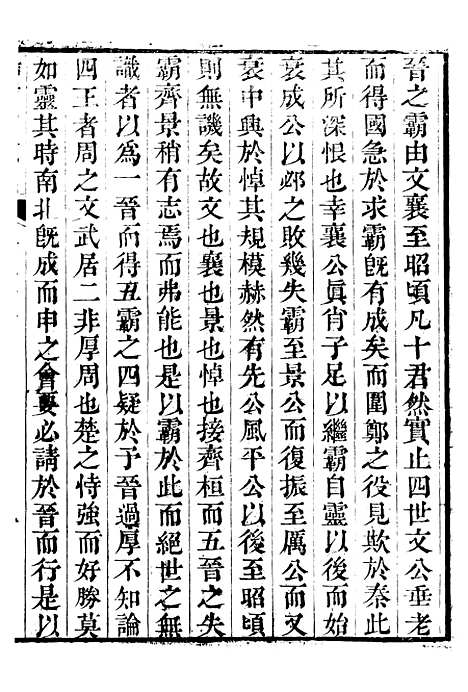 晉之霸由文襄至昭頃凡十君然實止四世文公垂老
而得國急於求霸旣有成矣而圍鄭之役見欺於秦此
其所深恨也幸襄公眞肖子足以繼霸自靈以後而始
衰成公以邲之敗幾失霸至景公而復振至厲公而又
衰中興於悼其規模赫然有先公風平公以後至昭頃
則無譏矣故文也襄也景也悼也接齊桓而五晉之失
霸齊景稍有志焉而弗能也是以霸於此而絕世之無
識者以爲一晉而得五霸之四疑於予晉過厚不知論
四王者周之文武居二非厚周也楚之恃強而好勝莫
如靈其時南北旣成而申之會要必請於晉而行是以